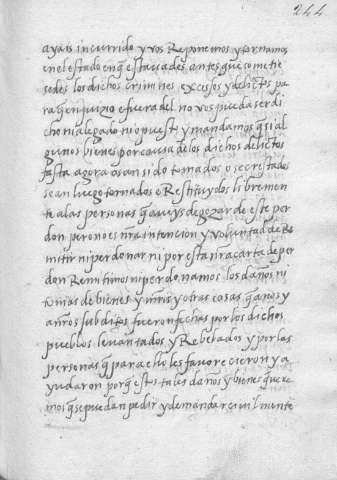 244
ayais incurrido y vos Reponemos y tornamos
en el estado en q̃ estauades antes que cometie
sedes los dichos crimines excesos y delictos pa
ra q̃ en juizio e fuera del no vos pueda ser di
cho ni alegado ni opuesto y mandamos q̃ si al
gunos bienes por causa de los dichos delictos
fasta agora os an sido tomados o secrestados
sean luego tornados e Restituydos libremen
te a las personas q̃ aueys de gozar de este per
don pero no es nr̃a intencion y voluntad de Re
mitir ni perdonar ni por esta nr̃a carta de per
don Remitimos ni perdonamos los daños ni
tomas de bienes y mr̃s y otras cosas q̃ a nos y
a nr̃os subditos fueron fechas por los dichos
pueblos leuantados y Rebelados y por las
personas q̃ para ello les fauorecieron y a
yudaron porq̃ estos tales daños y bienes quere
mos q̃ se puedan pedir y demandar ciuilmente